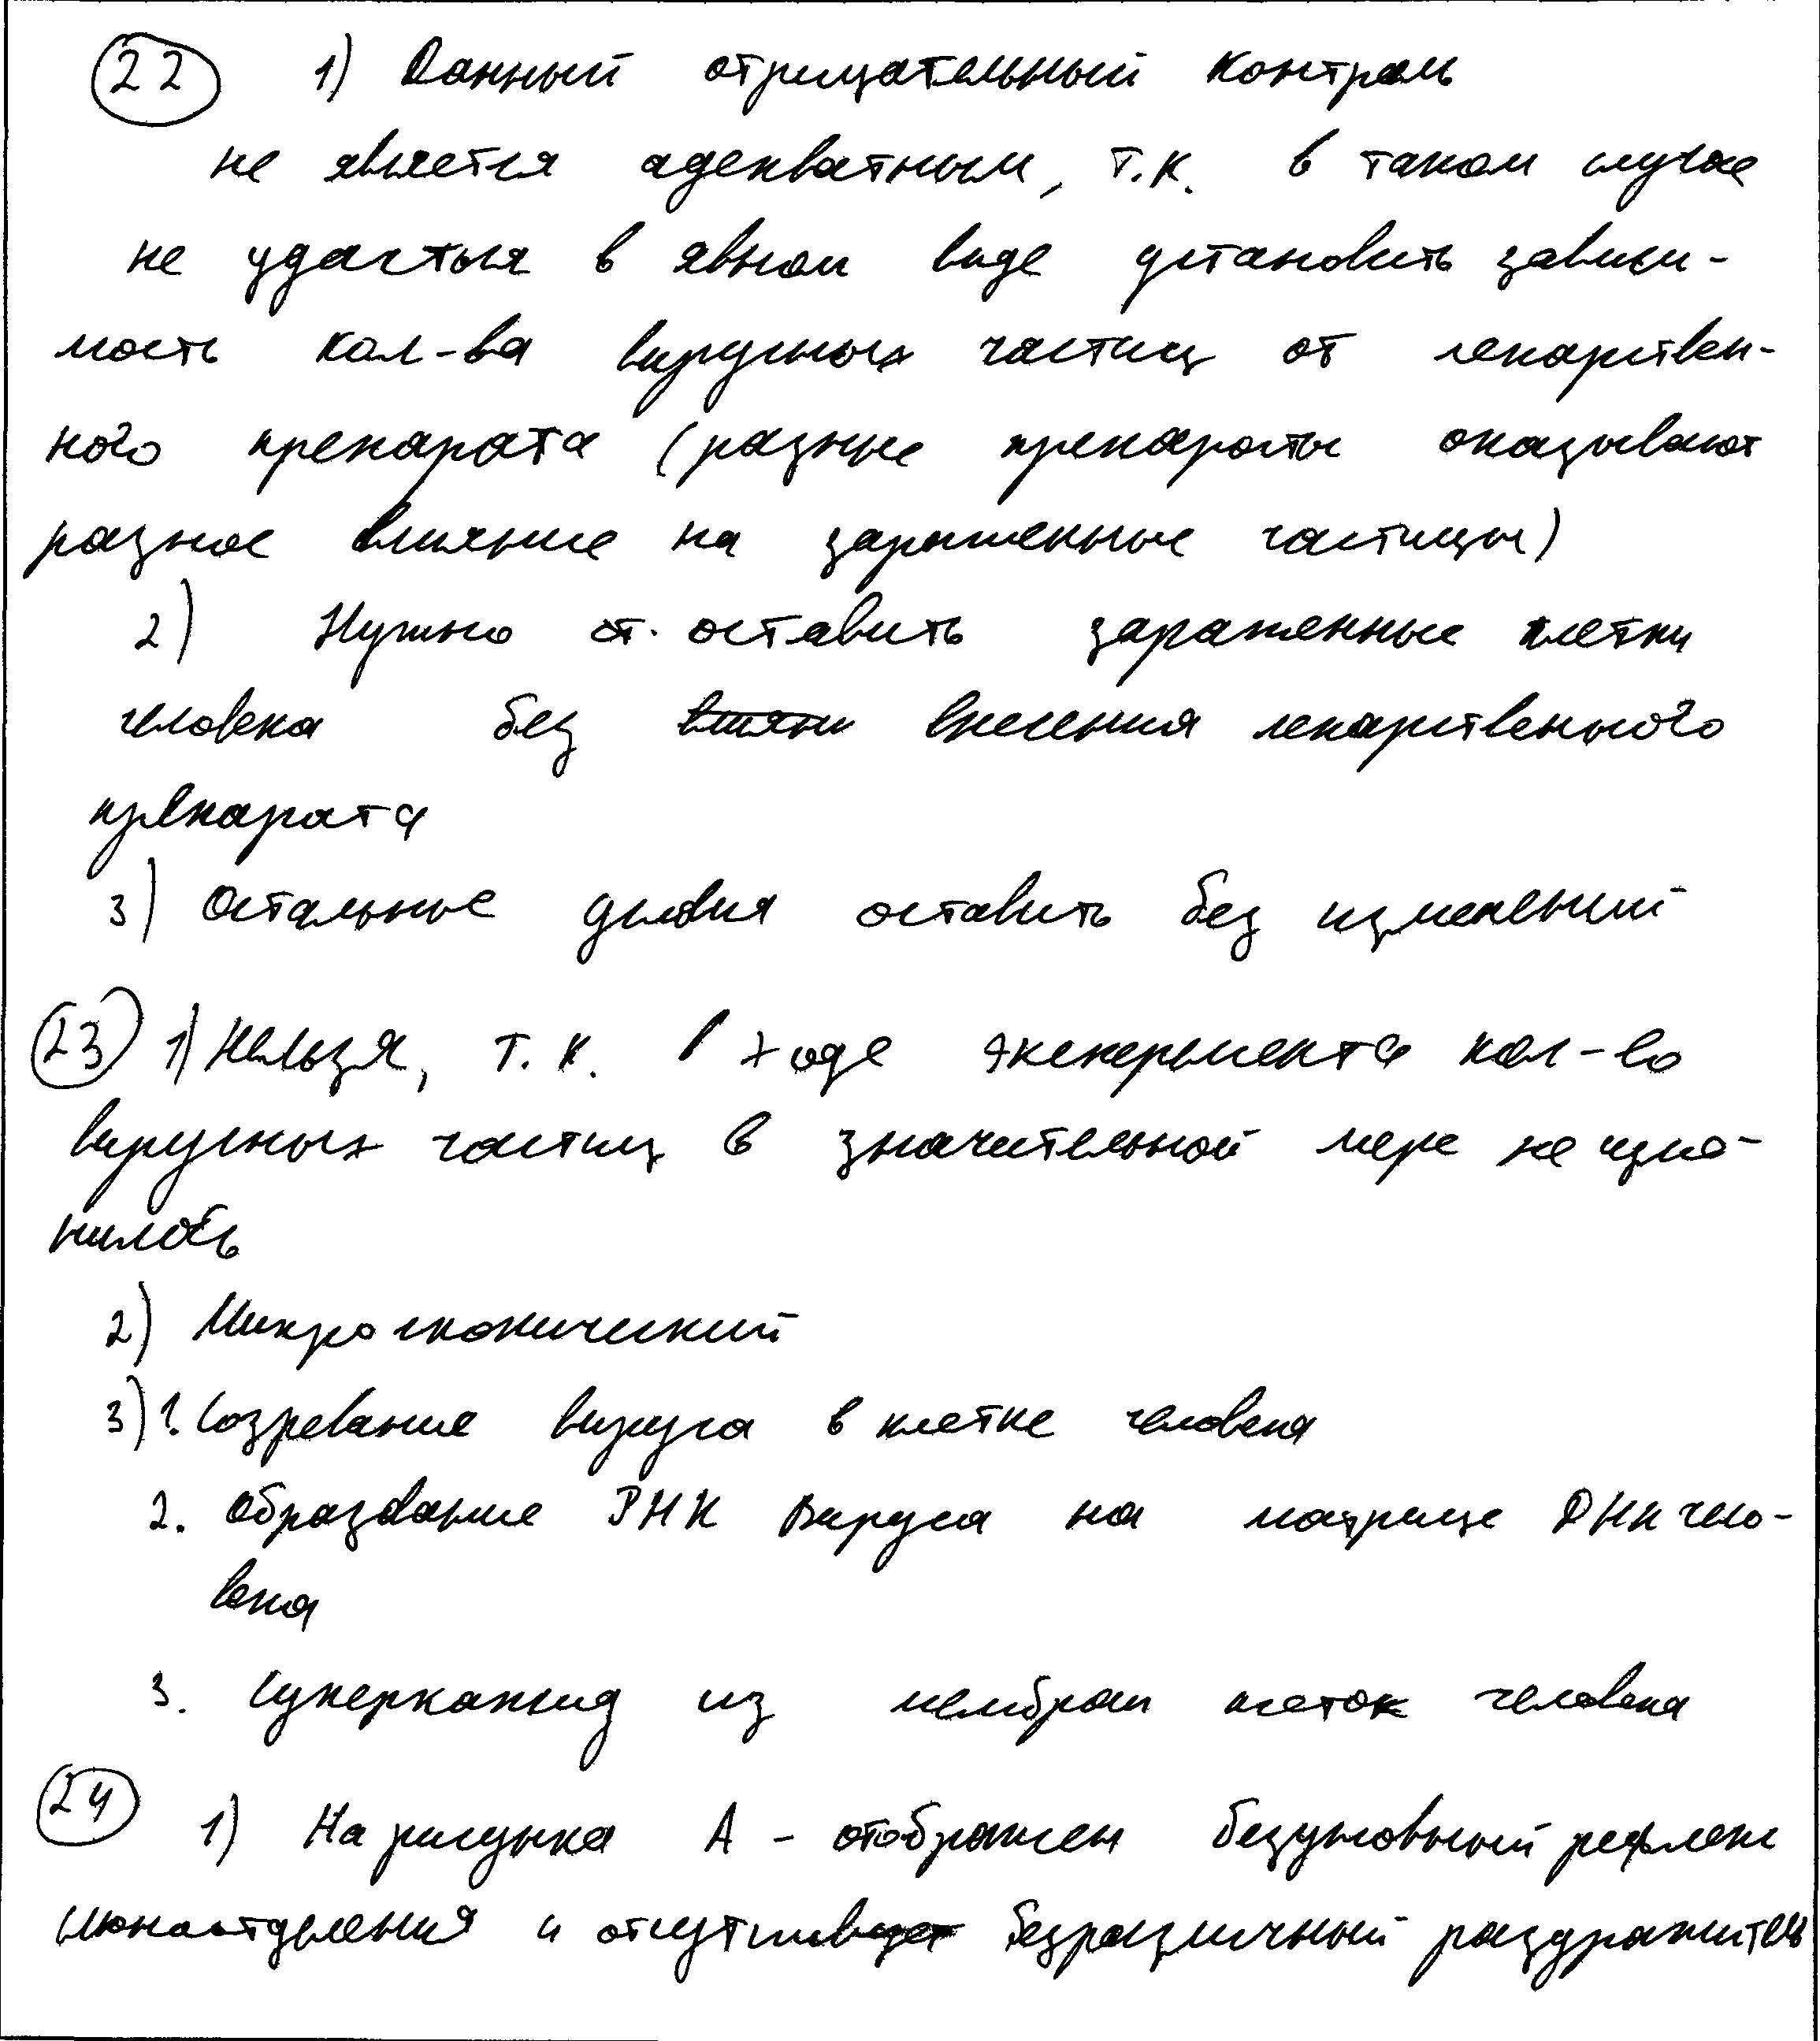 22 1) Данный отрицательный контроль
не является адекватным, т.к. в таком случае
не удастся в явном виде установить зависи-
мость кол-ва вирусных частиц от лекарствен-
ного препарата (разные препараты оказывают
разное влияние на зараженные частицы)
2) Нужно от. оставить зараженные клетки
человека без влиян внесения лекарственного
препарата
3) Остальные условия оставить без изменений
23 1) Нельзя, т.к. в ходе эксперимента кол-во
вирусных частиц в значительной мере не изме-
нилось
2) Микроскопический
3) 1. Созревание вируса в клетке человека
2. Образование РНК вируса на матрице ДНК чело-
века
3. Суперкапсид из мембран клеток человека
24 1) На рисунка А - отображен безусловный рефлекс
слюноотделения и отсутствует безразличный раздражитель